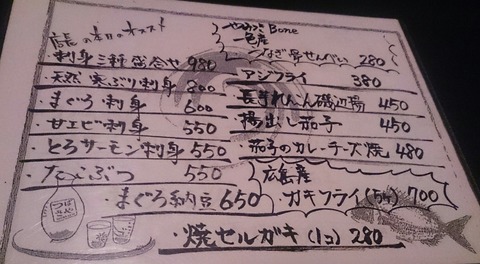 店長の本日のオススメ
刺身三種盛合せ 980
天然 寒ぶり刺身 800
・まぐろ刺身 600
・甘エビ刺身 550
・とろサーモン刺身 550
・たこぶつ 550
・まぐろ納豆 650
やみつきBone
一色産
うなぎ骨せんべい 280
アジフライ 380
長芋れんこん磯辺揚 450
揚出し茄子 450
茄子のカレーチーズ焼 480
広島産
・カキフライ(5ケ) 700
・焼セルガキ(1コ) 280